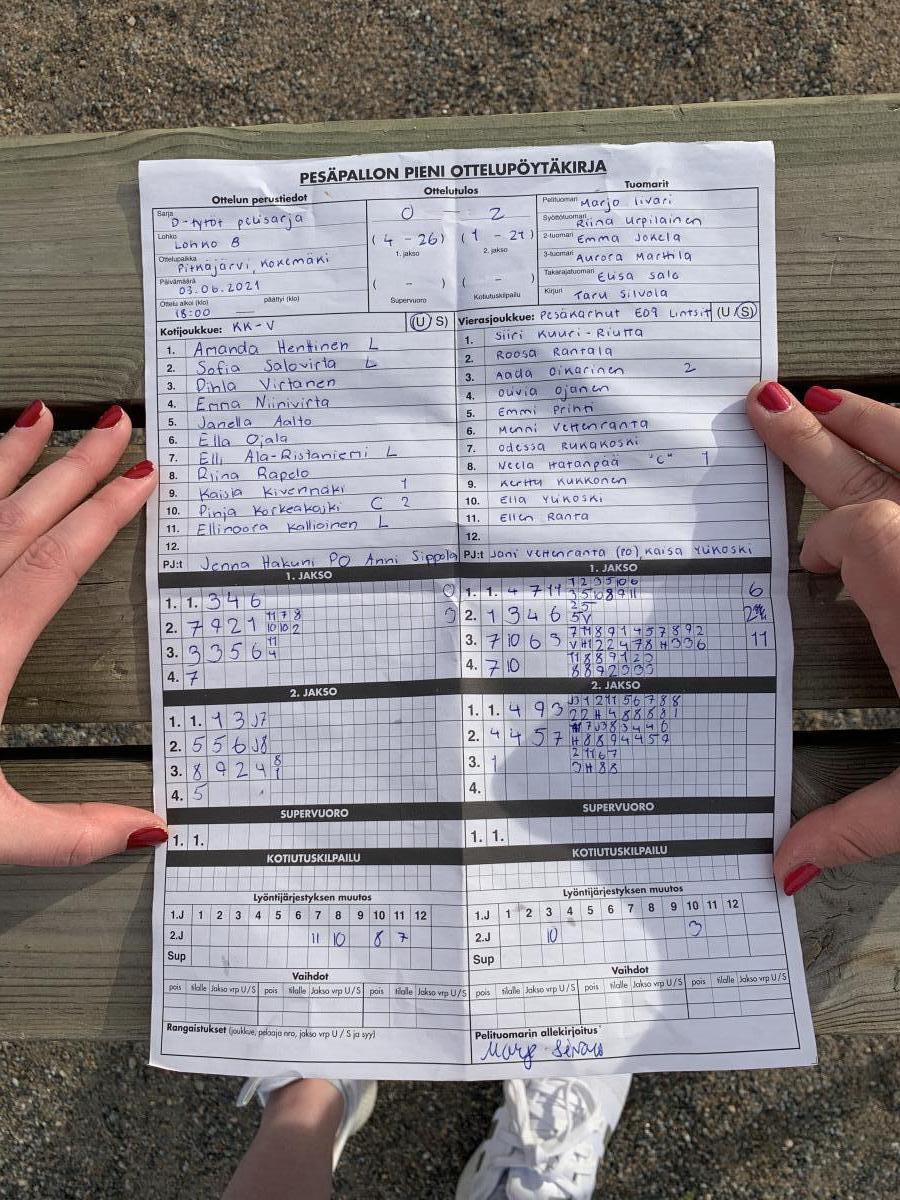 PESÄPALLON PIENI OTTELUPÖYTÄKIRJA
Ottelun perustiedot
Sarja D-tytöt pelisarja
Lohko Lohko B
Ottelupaikka Pitkäjärvi, Kokemäki
Päivämäärä 03.06.2021
Ottelu alkoi (klo) 18:00 päättyi (klo) —
Ottelutulos
0 — 2
( 4 - 26 ) ( 1 - 21 )
1. jakso 2. jakso
( - ) ( - )
Supervuoro Kotiutuskilpailu
Tuomarit
Pelituomari Marjo Iivari
Syöttötuomari Riina Urpilainen
2-tuomari Emma Jokela
3-tuomari Aurora Marttila
Takarajatuomari Elisa Salo
Kirjuri Taru Silvola
Kotijoukkue: KK-V (U/S)
1. Amanda Henttinen L
2. Sofia Salovirta L
3. Pihla Virtanen
4. Emma Niinivirta
5. Janella Aalto
6. Ella Ojala
7. Elli Ala-Ristaniemi L
8. Riina Rapelo
9. Kaisla Kivennäki 1
10. Pinja Korkeakoski C 2
11. Ellinoora Kallioinen L
12.
PJ:t Jenna Hakuni PO Anni Sippola
Vierasjoukkue: Pesäkarhut E09 Lintsit (U/S)
1. Siiri Kuuri-Riutta
2. Roosa Rantala
3. Aada Oikarinen 2
4. Olivia Ojanen
5. Emmi Prihti
6. Menni Vettenranta
7. Odessa Rukakoski
8. Neela Hatanpää "C" 1
9. Kerttu Kukkonen
10. Ella Yükoski
11. Ellen Ranta
12.
PJ:t Jani Vettenranta (PO), Kaisa Yükoski
1. JAKSO
1. 1. 3 4 6
2. 7 9 2 1 11 7 8
10 10 2
3. 3 3 5 6 11
4
4. 7
1. JAKSO
1. 1. 4 7 11 1 2 3 5 10 6
3 5 10 8 9 11 6
2. 1 3 4 6 2 5
5 V
3. 7 10 6 3 7 11 8 9 1 4 5 7 8 9 2
V H 1 2 2 4 7 8 H 3 3 6 11
4. 7 10
2. JAKSO
1. 1. 1 3 J7
2. 5 5 6 J8
3. 8 9 2 4 8
1
4. 5
2. JAKSO
1. 1. 4 9 3
2. 4 4 5 7
3. 1 2 11 6 7
J H 8 8
4.
SUPERVUORO
1. 1.
SUPERVUORO
1. 1.
KOTIUTUSKILPAILU
KOTIUTUSKILPAILU
Lyöntijärjestyksen muutos
1.J 1 2 3 4 5 6 7 8 9 10 11 12
2.J 11 10 8 7
Sup
Lyöntijärjestyksen muutos
1.J 1 2 3 4 5 6 7 8 9 10 11 12
2.J 10 3
Sup
Vaihdot
pois tilalle Jakso vrp U/S pois tilalle Jakso vrp U/S pois tilalle Jakso vrp U/S
Vaihdot
pois tilalle Jakso vrp U/S pois tilalle Jakso vrp U/S pois tilalle Jakso vrp U/S
Rangaistukset (joukkue, pelaaja nro, jakso vrp U / S ja syy)
Pelituomarin allekirjoitus